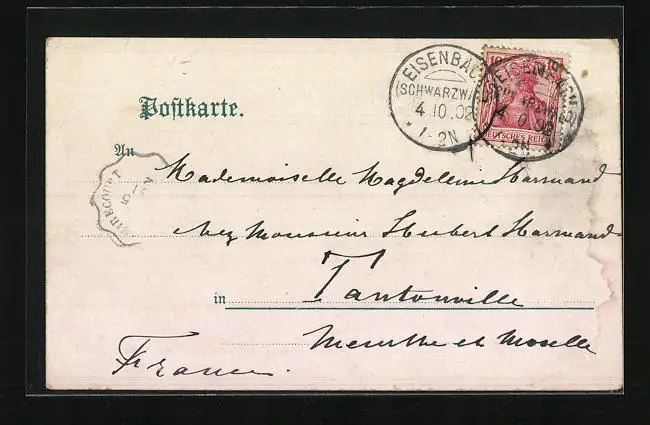 EISENBACH
(SCHWARZWALD)
4.10.02
* 1-2N
10
DEUTSCHES REICH
Postkarte.
An
MIRECOURT
5
Mademoiselle Magdeleine Harmand
chez Monsieur Hubert Harmand
in Tantonville
Meurthe et Moselle
France.